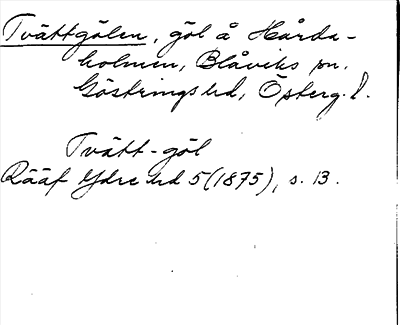 Tvättgölen, göl å Hårda-
holmen, Blåviks sn.
Göstrings hd, Östergl.
Tvätt-göl
Rääf Ydre hd 5 (1875), s. 13.